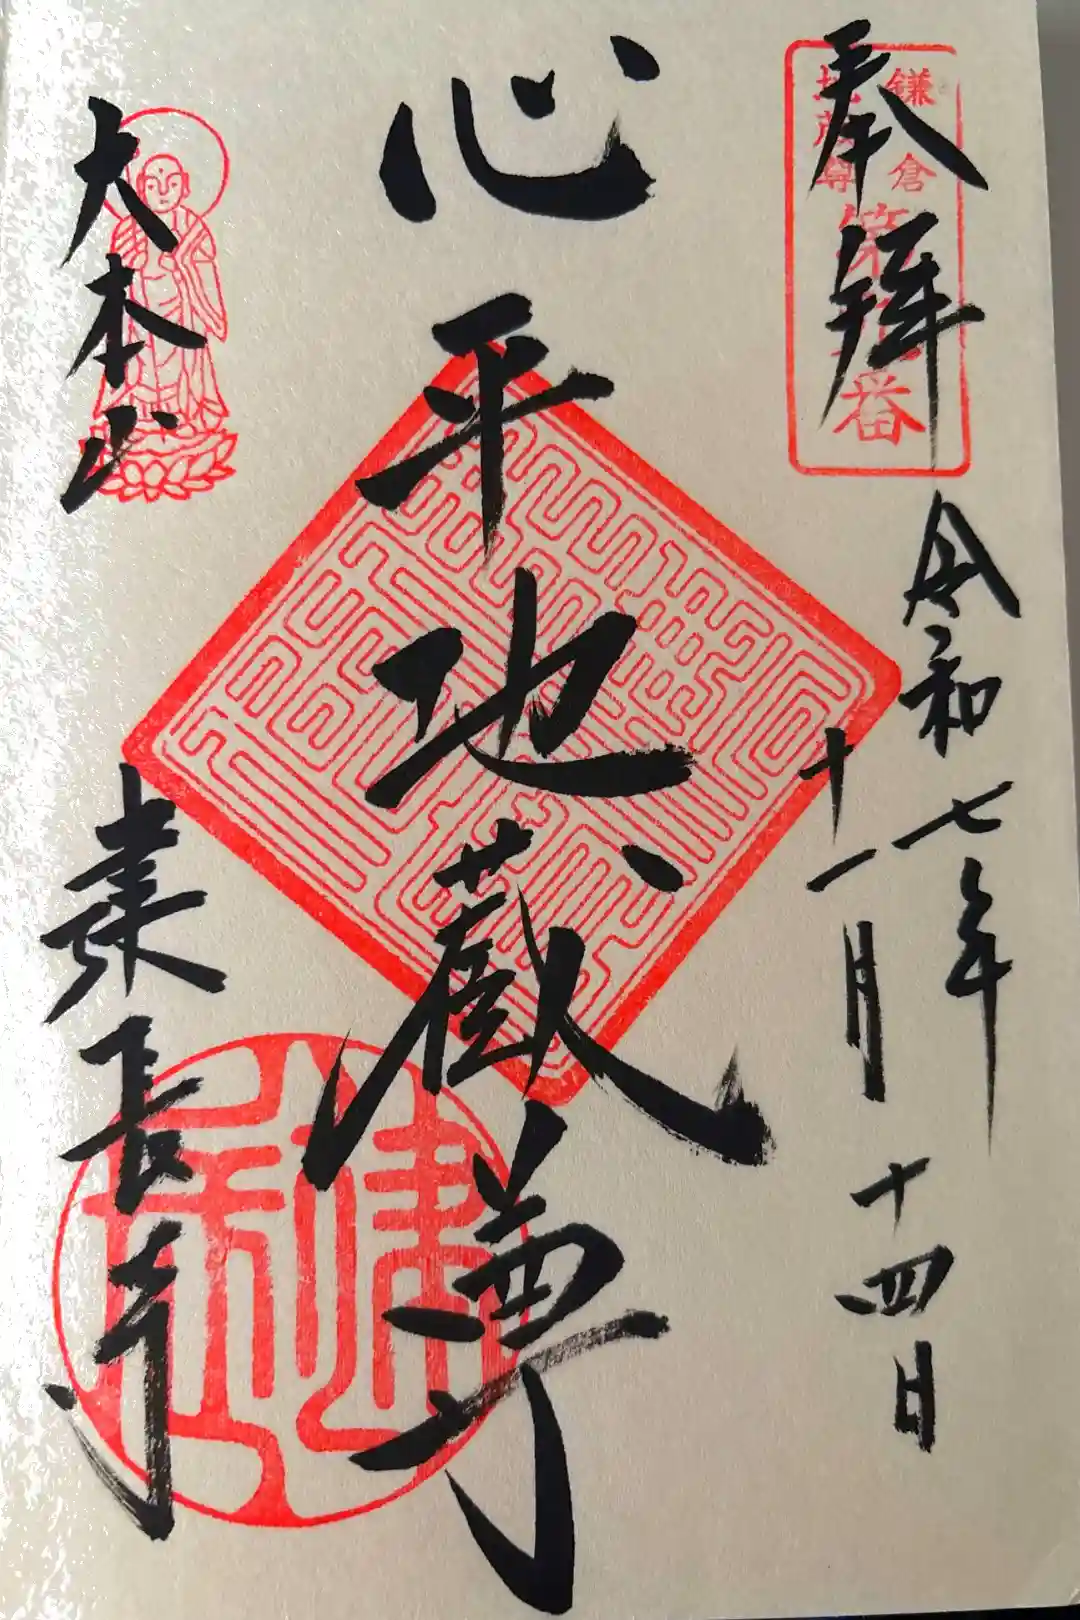 奉拝
鎌倉
地蔵尊
第
番
令和七年
十一月十四日
心平地蔵尊
大本山
建長寺